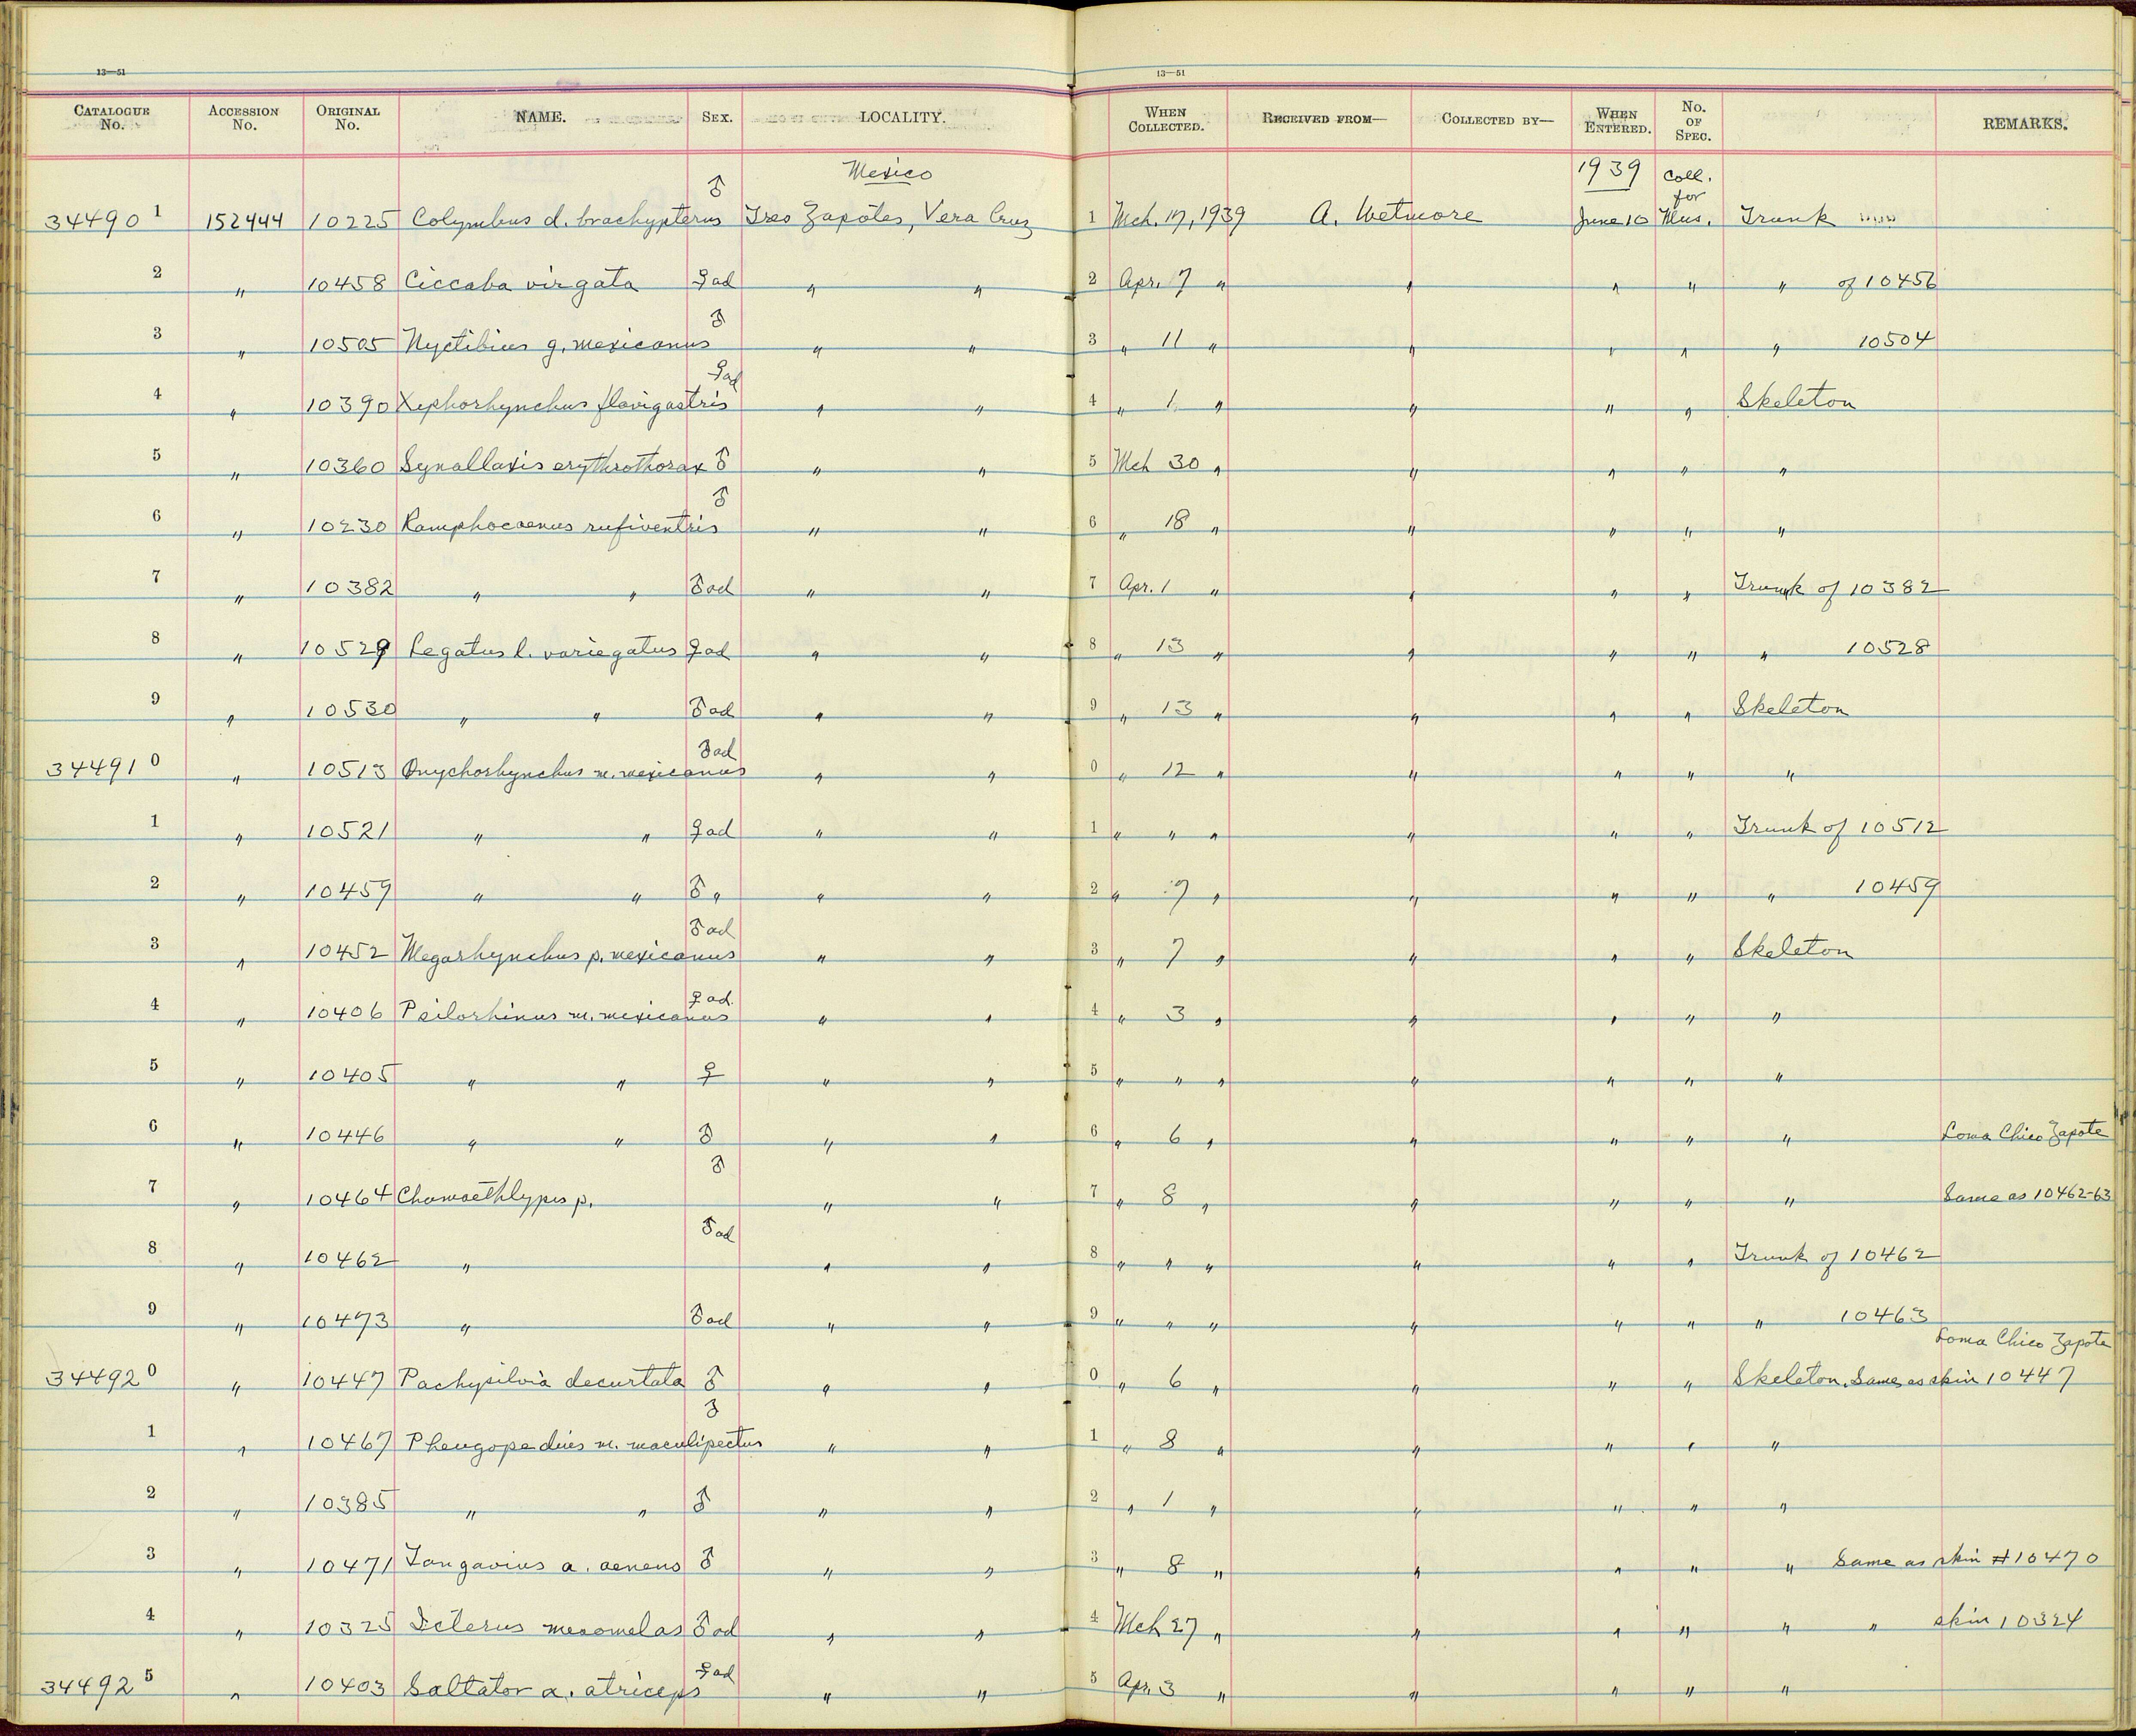 13—51 13—51
CATALOGUE No. ACCESSION No. ORIGINAL No. NAME. SEX. LOCALITY. WHEN COLLECTED. RECEIVED FROM— COLLECTED BY— WHEN ENTERED. No. OF SPEC. REMARKS.
Mexico 1939 Coll. for
34490 1 152444 10225 Colymbus d. brachypterus ♂ Tres Zapotes, Vera Cruz 1 Mch. 17, 1939 A. Wetmore June 10 Mus. Trunk
2 " 10458 Ciccaba virgata ♀ad " " 2 Apr. 7 " " " " " of 10456
3 " 10505 Nyctibius g. mexicanus ♂ " " 3 " 11 " " " " " 10504
4 " 10390 Xiphorhynchus flavigastris ♀ad " " 4 " 1 " " " " Skeleton
5 " 10360 Synallaxis erythrothorax ♂ " " 5 Mch 30 " " " " "
6 " 10230 Ramphocaenus rufiventris ♂ " " 6 " 18 " " " " "
7 " 10382 " " ♂ad " " 7 Apr. 1 " " " " Trunk of 10382
8 " 10529 Legatus l. variegatus ♀ad " " 8 " 13 " " " " " 10528
9 " 10530 " " ♂ad " " 9 " 13 " " " " Skeleton
34491 0 " 10513 Onychorhynchus m. mexicanus ♂ad " " 0 " 12 " " " " "
1 " 10521 " " ♀ad " " 1 " " " " " " Trunk of 10512
2 " 10459 " " ♂ " " " 2 " 7 " " " " " 10459
3 " 10452 Megarhynchus p. mexicanus ♂ad " " 3 " 7 " " " " Skeleton
4 " 10406 Psilorhinus m. mexicanus ♀ad. " " 4 " 3 " " " " "
5 " 10405 " " ♀ " " 5 " " " " " " "
6 " 10446 " " ♂ " " 6 " 6 " " " " " Loma Chico Zapote
7 " 10464 Chamaethlypis p. ♂ " " 7 " 8 " " " " " Same as 10462-63
8 " 10462 " ♂ad " " 8 " " " " " " Trunk of 10462
9 " 10473 " ♂ad " " 9 " " " " " " " 10463
Loma Chico Zapote
34492 0 " 10447 Pachysilvia decurtata ♂ " " 0 " 6 " " " " Skeleton. Same as skin 10447
1 " 10467 Pheugopedius m. maculipectus ♂ " " 1 " 8 " " " " "
2 " 10385 " " ♂ " " 2 " 1 " " " " "
3 " 10471 Tangavius a. aeneus ♂ " " 3 " 8 " " " " " Same as skin #10470
4 " 10325 Icterus mesomelas ♂ad " " 4 Mch 27 " " " " " " skin 10324
34492 5 " 10403 Saltator a. atriceps ♀ad " " 5 Apr. 3 " " " " "